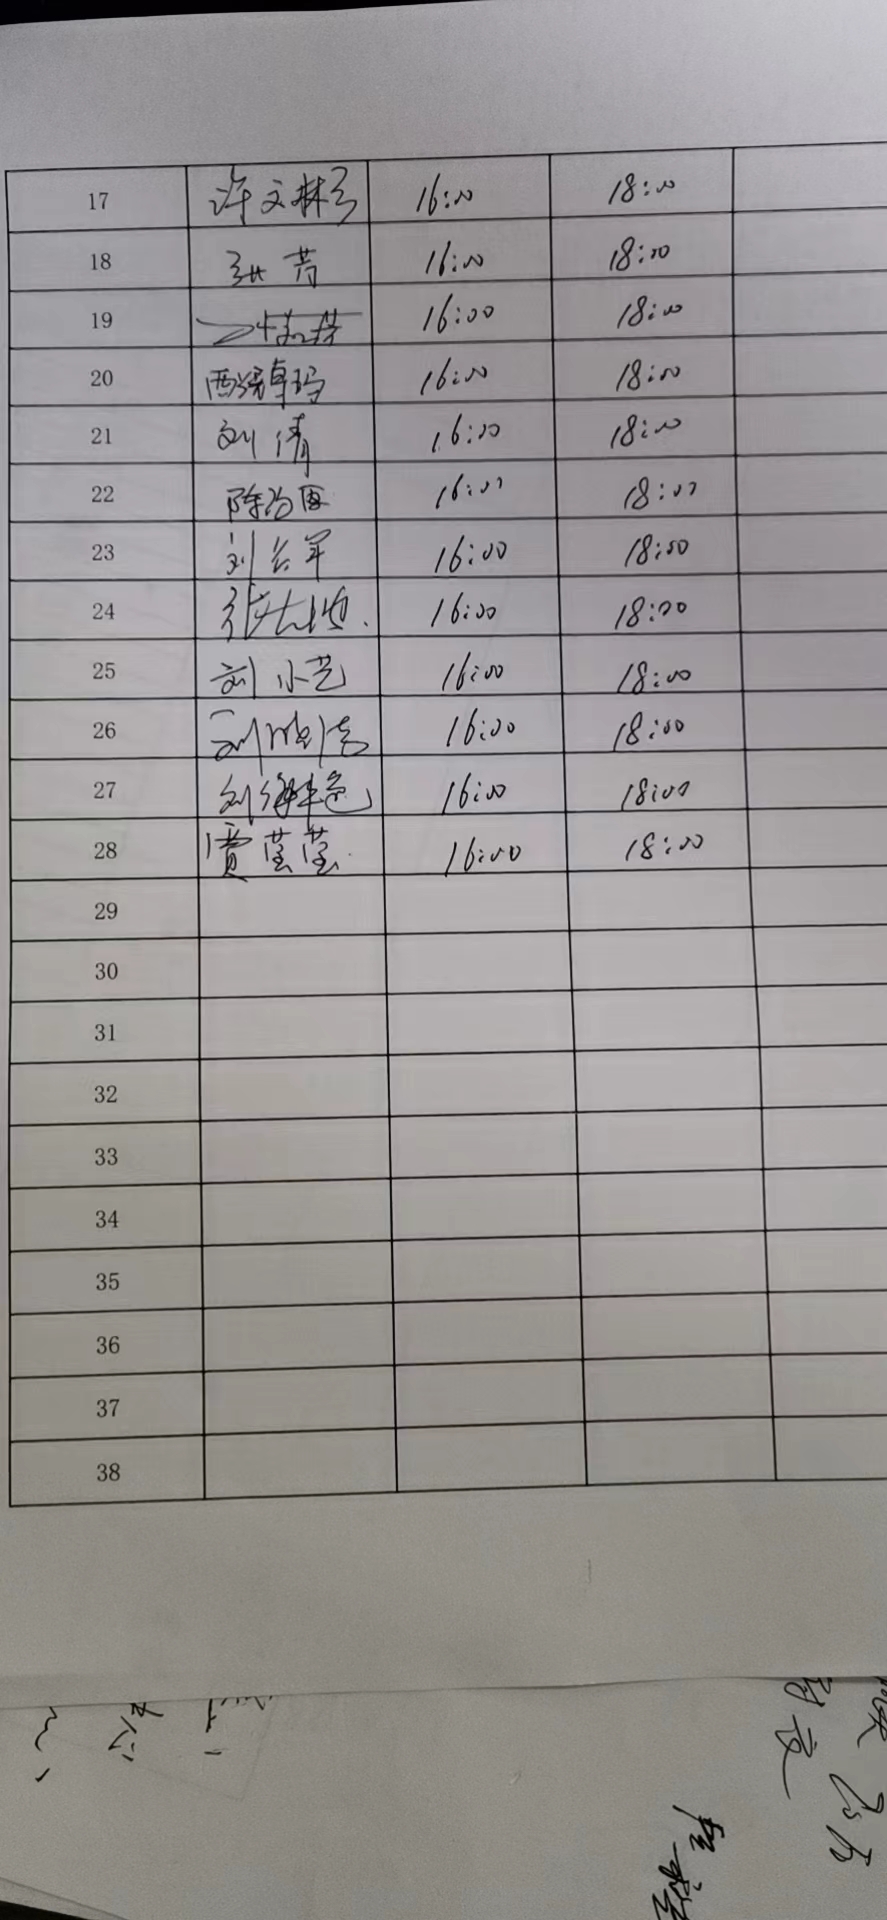 17 许文彬 16:00 18:00
18 16:00 18:00
19 16:00 18:00
20 西绕卓玛 16:00 18:00
21 刘倩 16:00 18:00
22 16:00 18:00
23 刘云军 16:00 18:00
24 16:00 18:00
25 刘小艺 16:00 18:00
26 刘 16:00 18:00
27 刘 16:00 18:00
28 贾莹莹 16:00 18:00
29
30
31
32
33
34
35
36
37
38